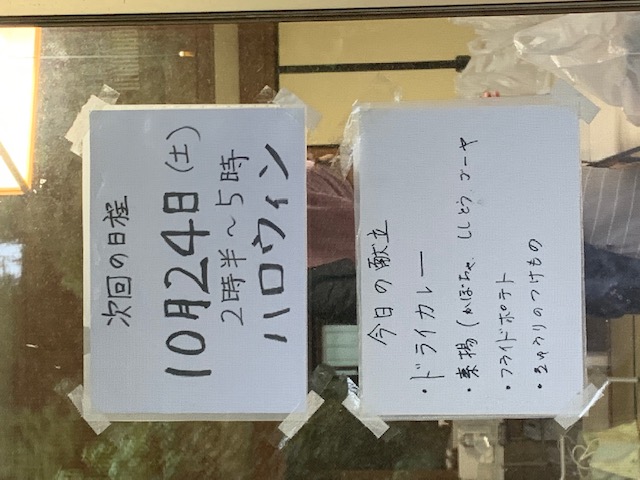 次回の日程
10月24日(土)
2時半〜5時
ハロウィン
今日の献立
・ドライカレー
・素揚(かぼちゃ、ししとう、ゴーヤ
・フライドポテト
・きゅうりのつけもの